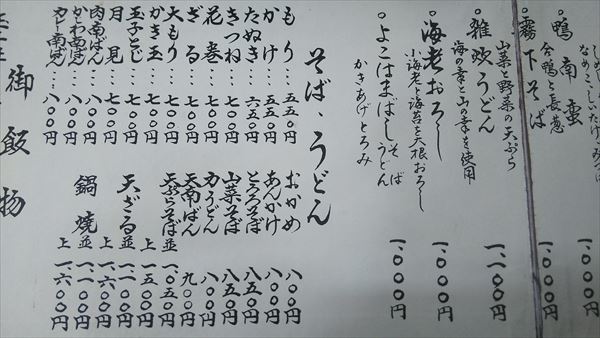 ・鴨南蛮 一、〇〇〇円
合鴨と長葱
・霧下そば 一、〇〇〇円
山菜と野菜の天ぷら
・雑炊うどん 一、一〇〇円
海の幸と山の幸を使用
・海老おろし 一、〇〇〇円
小海老と海苔を大根おろし
・よこはまばし そば うどん 一、〇〇〇円
かきあげとろみ
そば、うどん
もり…五五〇円
かけ…五五〇円
たぬき…六五〇円
きつね…七〇〇円
花巻…七〇〇円
ざる…七〇〇円
大もり…七〇〇円
かき玉…七〇〇円
玉子とじ…七〇〇円
月見…七〇〇円
肉南ばん…八〇〇円
かしわ南ばん…八〇〇円
カレー南ばん…八〇〇円
おかめ 八〇〇円
あんかけ 八〇〇円
とろろそば 八五〇円
山菜そば 八五〇円
力うどん 八〇〇円
天南ばん 九〇〇円
天ぷらそば並 一、〇五〇円
上 一、五〇〇円
天ざる並 一、一〇〇円
上 一、六〇〇円
鍋焼並 一、一〇〇円
上 一、六〇〇円
御飯物